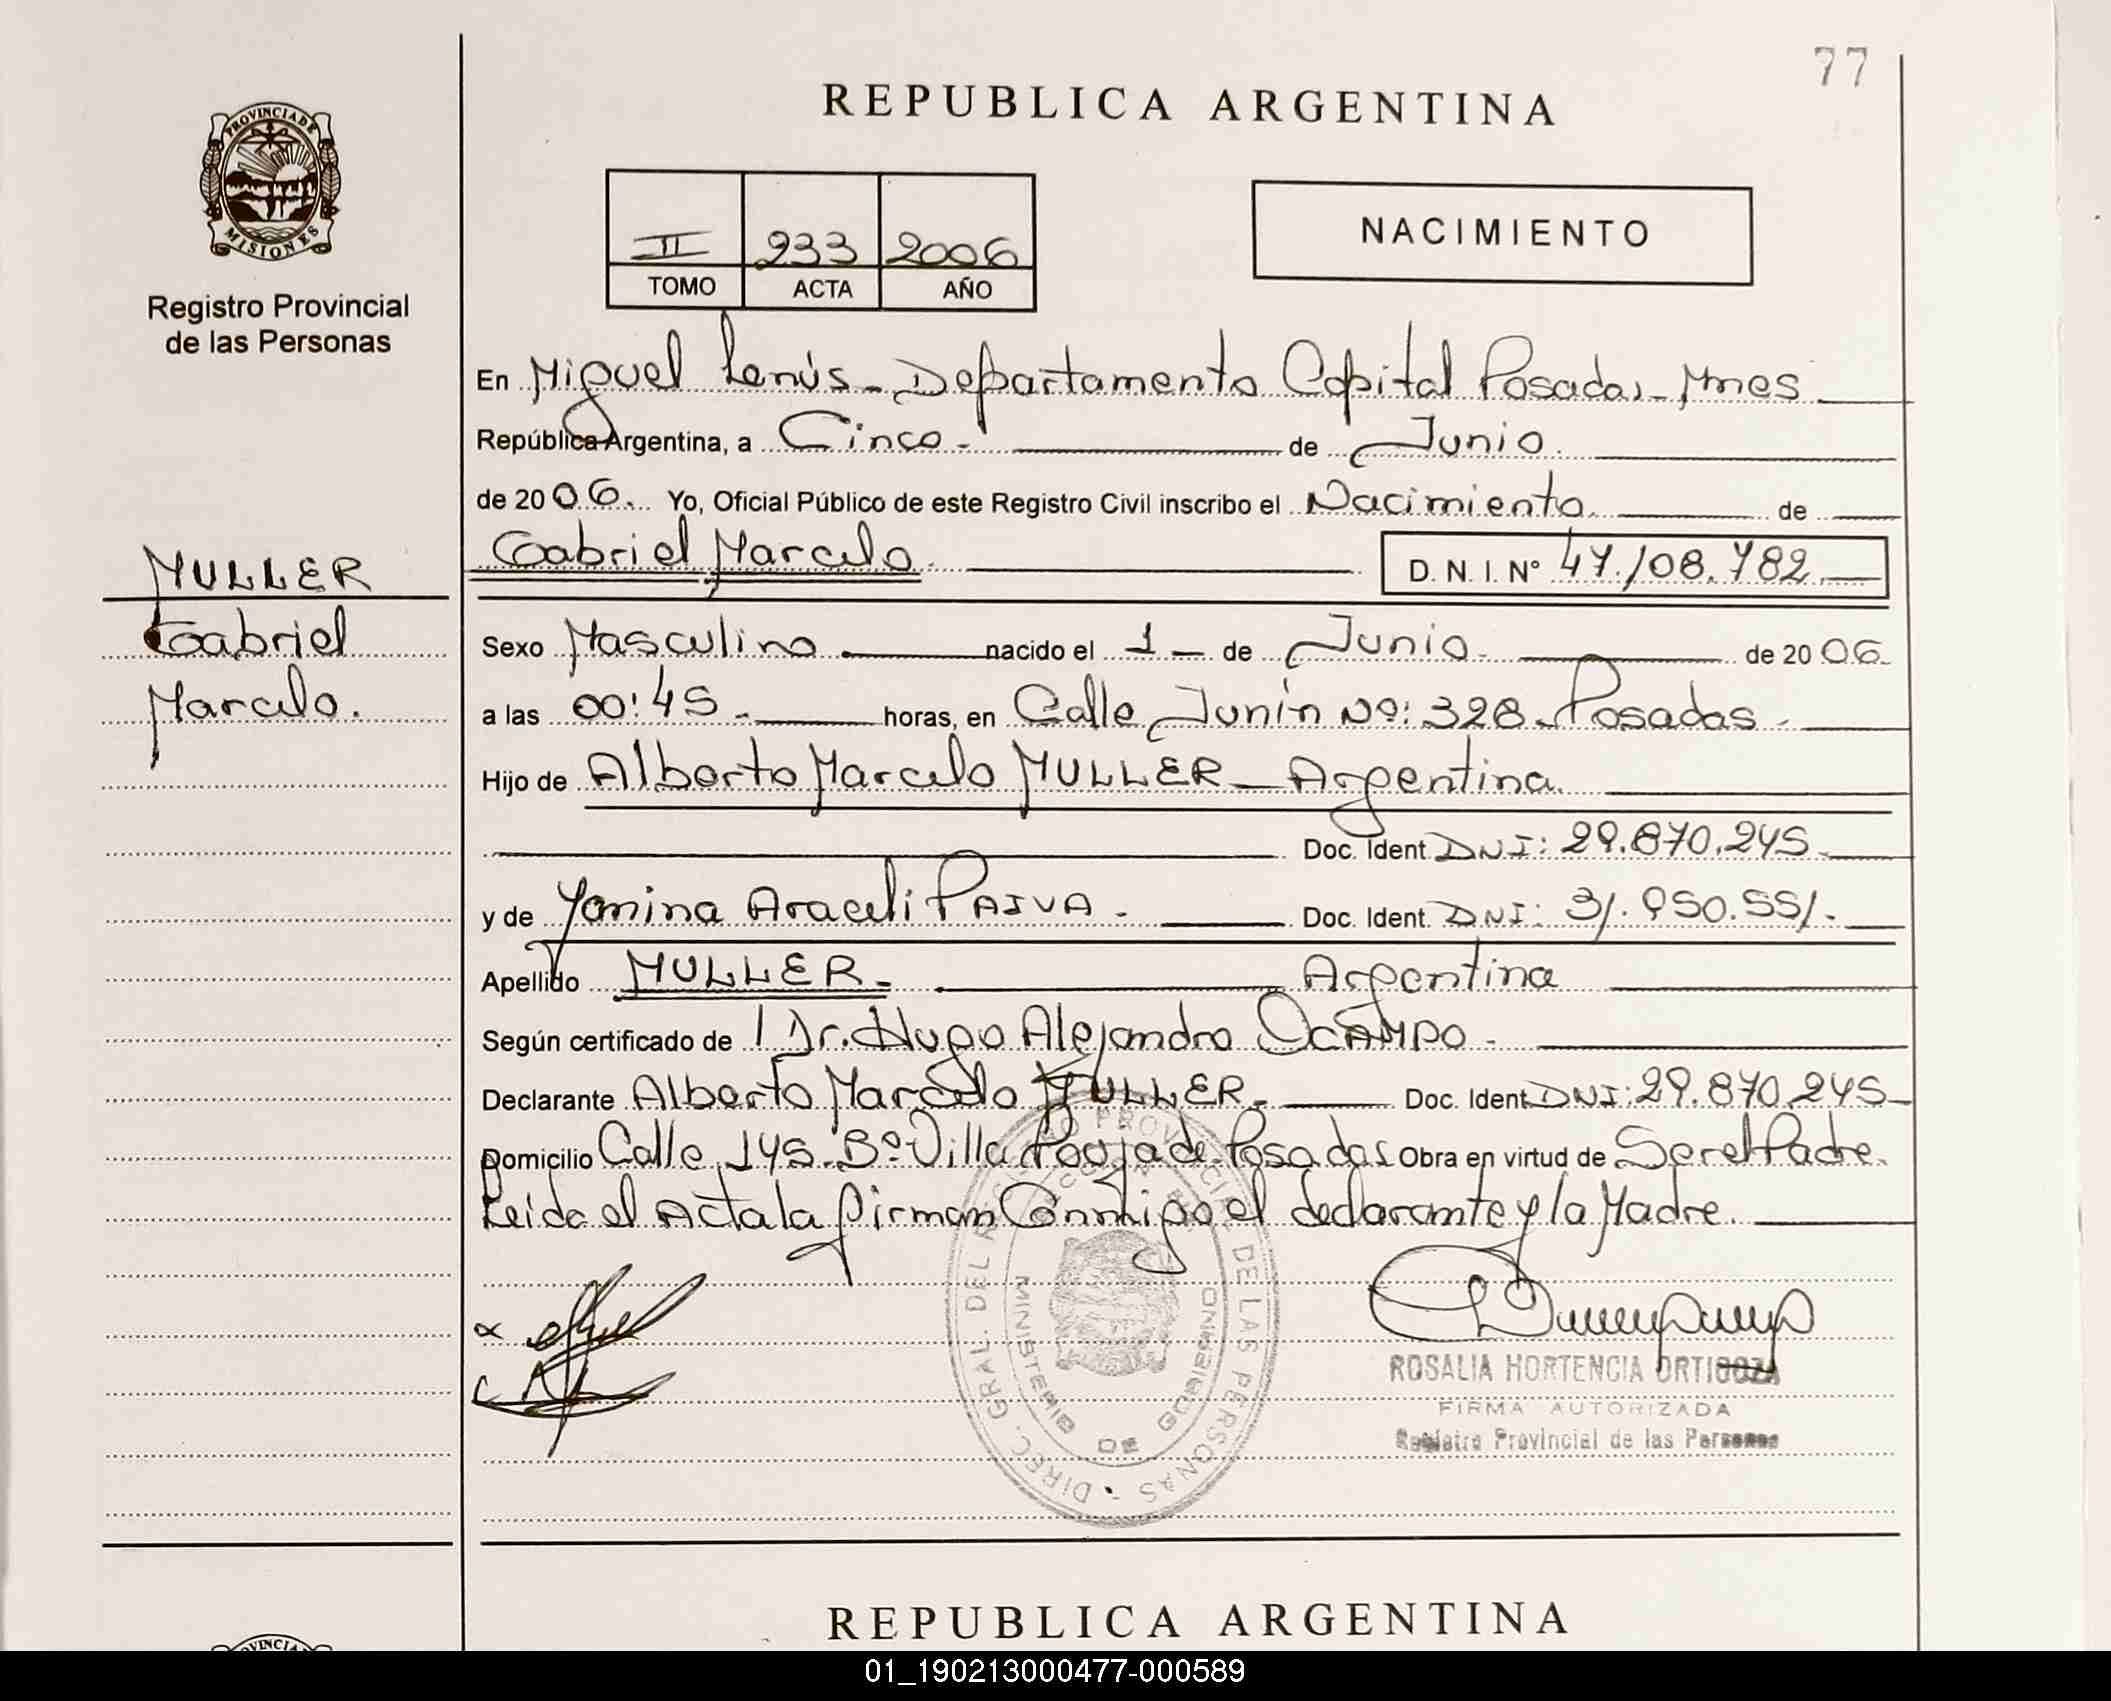 77
REPUBLICA ARGENTINA
PROVINCIA DE
MISIONES
Registro Provincial
de las Personas
II 233 2006
TOMO ACTA AÑO
NACIMIENTO
En Miguel Lanús - Departamento Capital Posadas - Mnes
República Argentina, a Cinco - de Junio.
de 2006. Yo, Oficial Público de este Registro Civil inscribo el Nacimiento de
Gabriel Marcelo. D. N. I. Nº 47.108.782
MULLER
Gabriel
Marcelo.
Sexo Masculino nacido el 1 - de Junio - de 2006.
a las 00:45 - horas, en Calle Junín Nº: 328 - Posadas -
Hijo de Alberto Marcelo MULLER - Argentina.
Doc. Ident. DNI: 29.870.245 -
y de Yanina Araceli PAIVA - Doc. Ident. DNI: 31.950.551. -
Apellido MULLER - Argentina
Según certificado de Dr. Hugo Alejandro OCAMPO -
Declarante Alberto Marcelo MULLER - Doc. Ident. DNI: 29.870.245 -
Domicilio Calle 145 - Bº Villa Poujade - Posadas Obra en virtud de Ser el Padre.
Leida el Acta la firman Conmigo el declarante y la Madre.
DIREC. GRAL. DEL REGISTRO PROVINCIAL DE LAS PERSONAS
MINISTERIO DE GOBIERNO
ROSALIA HORTENCIA ORTIGOZA
FIRMA AUTORIZADA
Registro Provincial de las Personas
REPUBLICA ARGENTINA
01_190213000477-000589